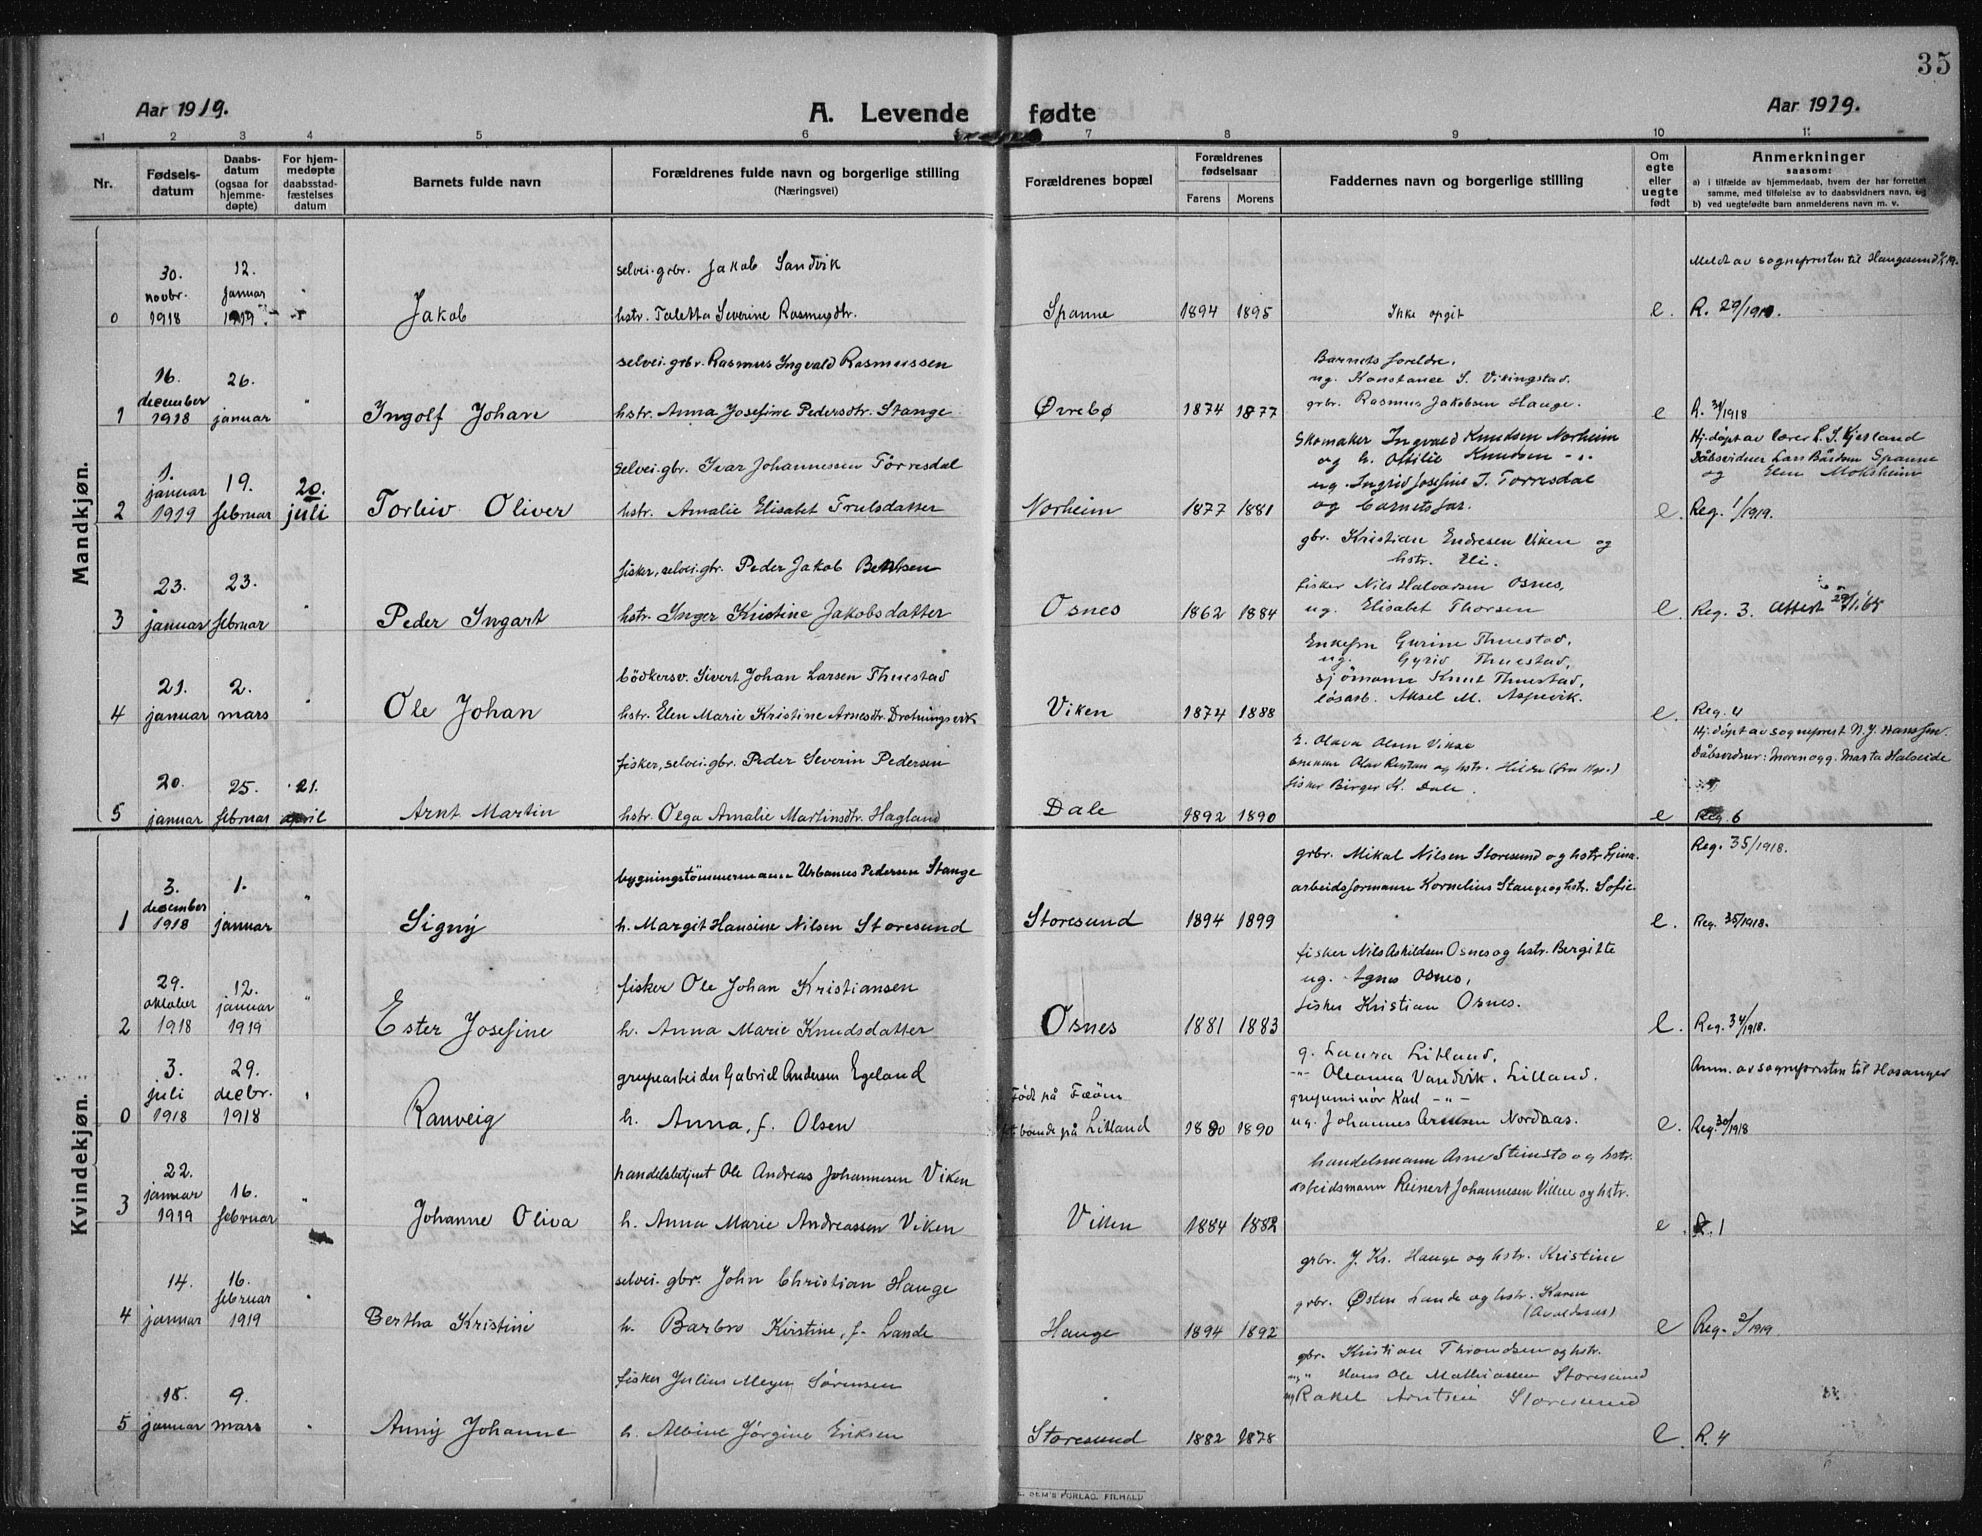 35
Aar 1919.
A. Levende fødte
Aar 1919.
1 2 3 4 5 6 7 8 9 10 11
Nr.
Fødsels-
datum
Daabs-
datum
(ogsaa for
hjemme-
døpte)
For hjem-
medøpte
daabsstad-
fæstelses
datum
Barnets fulde navn
Forældrenes fulde navn og borgerlige stilling
(Næringsvei)
Forældrenes bopæl
Forældrenes
fødselsaar
Farens Morens
Faddernes navn og borgerlige stilling
Om
egte
eller
uegte
født
Anmerkninger
saasom:
a) i tilfælde av hjemmedaab, hvem der har forrettet
samme, med tilføielse av to daabsvidners navn, og
b) ved uegtefødte barn anmelderens navn m. v.
Mandkjøn.
0
30. novbr. 1918
12. januar 1919
Jakob
selvei. grbr. Jakob Sandvik
hstr. Taletta Severine Rasmusdtr.
Spanne
1894 1895
Ikke opgit
e.
Meldt av sognepresten til Haugesund
R. 29/1918.
1
16. december 1918
26. januar
"
Ingolf Johan
selvei. grbr. Rasmus Ingvald Rasmussen
hstr. Anna Josefine Pedersdtr. Stange
Øvrebø
1874 1877
Barnets foreldre.
ug. Konstance S. Vikingstad.
grbr. Rasmus Jakobsen Hauge.
e
R. 31/1918
2
1. januar 1919
19. februar
20. juli
Torleiv Oliver
selvei. gbr. Ivar Johannessen Torresdal
hstr. Amalie Elisabet Trulsdatter
Norheim
1877 1881
Skomaker Ingvald Knudsen Norheim
og h. Ottilie Knudsen -"-
ug. Ingrid Josefine I. Torresdal
og barnets far.
e.
Hj. døpt av lærer L. S. Kjetland
Dåbsvidner Lars Bårdsen Spanne
og Elen Moksheim
Reg. 1/1919.
3
23. januar
23. februar
"
Peder Ingart
fisker, selvei. gbr. Peder Jakob Bentsen
hstr. Inger Kristine Jakobsdatter
Osnes
1862 1884
gbr. Kristian Endresen Viken og
hstr. Eli.
fisker Nils Halvorsen Osnes,
ug. Elisabet Thorsen
e.
Reg. 3. Attest 29/1.65
4
21. januar
2. mars
"
Ole Johan
bödkersv. Sivert Johan Larsen Thuestad
hstr. Elen Marie Kristine Arnesdtr. Drotningsvik
Viken
1874 1888
Enkefru Gurine Thuestad,
ug. Gyrid Thuestad,
sjømann Knut Thuestad,
løsarb. Aksel M. Aspevik.
e.
Reg. 4
5
20. januar
25. februar
21. april
Arnt Martin
fisker, selvei. gbr. Peder Severin Pedersen
hstr. Olga Amalie Martinsdtr. Hagland
Dale
1892 1890
E. Olava Olsen Vikse
Olav Restan og hstr. Hilda
fisker Birger K. Dale.
e
Hj. døpt av sogneprest N. J. Hanssen.
Dåbsvidner: Moren og g. Marta Halseide
Reg. 6
Kvindekjøn.
1
3. december 1918
1. januar
"
Signy
bygningstömmermann Urbanus Pedersen Stange
h. Margit Hansine Nilsen Storesund
Storesund
1894 1899
grbr. Mikal Nilsen Storesund og hstr. Lina.
arbeidsformann Kornelius Stange og hstr. Sofie
e.
Reg. 35/1918.
Reg. 35/1918.
2
29. oktober 1918
12. januar 1919
"
Ester Josefine
fisker Ole Johan Kristiansen
h. Anna Marie Knudsdatter
Osnes
1881 1883
fisker Nils Askildsen Osnes og hstr. Bergitte
ug. Agnes Osnes,
fisker Kristian Osnes.
e.
Reg. 34/1918.
0
3. juli 1918
29. decbr. 1918
Ranveig
grupearbeider Gabriel Andersen Egeland
h. Anna, f. Olsen
Født på Fæøen
boende på Litland
1880 1890
g. Laura Litland,
-"- Oleanna Vandvik, Litland.
grupeminør Karl -"-
ug. Johannes Arnesen Nordaas.
e.
Anm. av sognepresten til Hosanger
Reg. 30/1918
3
22. januar 1919
16. februar
"
Johanne Oliva
handelsbetjent Ole Andreas Johannesen Viken
h. Anna Marie Andreassen Viken
Viken
1884 1882
handelsmann Arne Steinsto og hstr.
arbeidsmann Reinert Johannesen Viken og hstr.
e.
R. 1
4
14. januar
16. februar 1919
"
Bertha Kristine
selvei. gbr. John Christian Hauge
h. Barbro Kirstine, f. Lande
Hauge
1894 1892
grbr. J. Kr. Hauge og hstr. Kristine
grbr. Østen Lande og hstr. Karen
(Avaldsnes)
e
Reg. 2/1919
5
18. januar
9. mars
"
Anny Johanne
fisker Julius Meyer Sørensen
h. Albine Jørgine Eriksen
Storesund
1882 1878
gbr. Kristian Thromdsen og hstr.
ug " Hans Ole Mathiassen Storesund
ug Rakel Arntsen Storesund
e.
R. 4